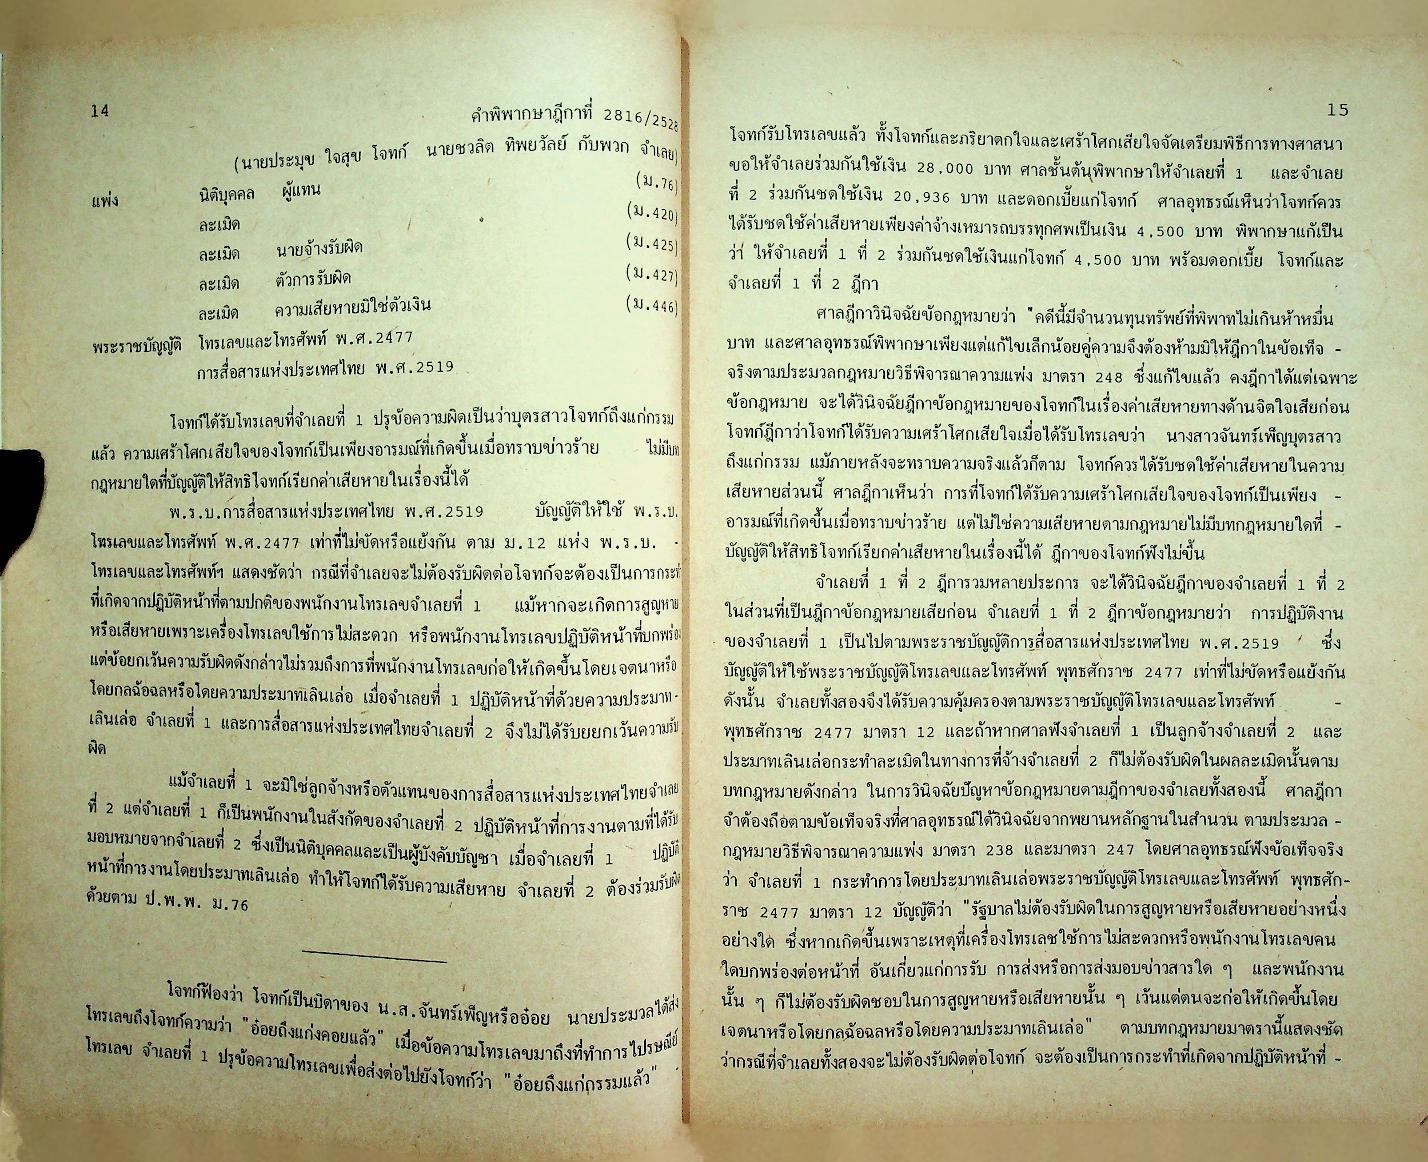 14
คำพิพากษาฎีกาที่ 2816/2528
(นายประมุข ใจสุข โจทก์ นายชวลิต ทิพยวัลย์ กับพวก จำเลย)
แพ่ง นิติบุคคล ผู้แทน (ม.76)
ละเมิด (ม.420)
ละเมิด นายจ้างรับผิด (ม.425)
ละเมิด ตัวการรับผิด (ม.427)
ละเมิด ความเสียหายมิใช่ตัวเงิน (ม.446)
พระราชบัญญัติ โทรเลขและโทรศัพท์ พ.ศ.2477
การสื่อสารแห่งประเทศไทย พ.ศ.2519
โจทก์ได้รับโทรเลขที่จำเลยที่ 1 ปรุข้อความผิดเป็นว่าบุตรสาวโจทก์ถึงแก่กรรม
แล้ว ความเศร้าโศกเสียใจของโจทก์เป็นเพียงอารมณ์ที่เกิดขึ้นเมื่อทราบข่าวร้าย ไม่มีบท
กฎหมายใดที่บัญญัติให้สิทธิโจทก์เรียกค่าเสียหายในเรื่องนี้ได้
พ.ร.บ.การสื่อสารแห่งประเทศไทย พ.ศ.2519 บัญญัติให้ใช้ พ.ร.บ.
โทรเลขและโทรศัพท์ พ.ศ.2477 เท่าที่ไม่ขัดหรือแย้งกัน ตาม ม.12 แห่ง พ.ร.บ. -
โทรเลขและโทรศัพท์ฯ แสดงชัดว่า กรณีที่จำเลยจะไม่ต้องรับผิดต่อโจทก์จะต้องเป็นการกระทำ
ที่เกิดจากปฏิบัติหน้าที่ตามปกติของพนักงานโทรเลขจำเลยที่ 1 แม้หากจะเกิดการสูญหาย
หรือเสียหายเพราะเครื่องโทรเลขใช้การไม่สะดวก หรือพนักงานโทรเลขปฏิบัติหน้าที่บกพร่อง
แต่ข้อยกเว้นความรับผิดดังกล่าวไม่รวมถึงการที่พนักงานโทรเลขก่อให้เกิดขึ้นโดยเจตนาหรือ
โดยกลฉ้อฉลหรือโดยความประมาทเลินเล่อ เมื่อจำเลยที่ 1 ปฏิบัติหน้าที่ด้วยความประมาท-
เลินเล่อ จำเลยที่ 1 และการสื่อสารแห่งประเทศไทยจำเลยที่ 2 จึงไม่ได้รับยยกเว้นความรับ
ผิด
แม้จำเลยที่ 1 จะมิใช่ลูกจ้างหรือตัวแทนของการสื่อสารแห่งประเทศไทยจำเลย
ที่ 2 แต่จำเลยที่ 1 ก็เป็นพนักงานในสังกัดของจำเลยที่ 2 ปฏิบัติหน้าที่การงานตามที่ได้รับ
มอบหมายจากจำเลยที่ 2 ซึ่งเป็นนิติบุคคลและเป็นผู้บังคับบัญชา เมื่อจำเลยที่ 1 ปฏิบัติ
หน้าที่การงานโดยประมาทเลินเล่อ ทำให้โจทก์ได้รับความเสียหาย จำเลยที่ 2 ต้องร่วมรับผิด
ด้วยตาม ป.พ.พ. ม.76
โจทก์ฟ้องว่า โจทก์เป็นบิดาของ น.ส.จันทร์เพ็ญหรืออ๋อย นายประมวลได้ส่ง
โทรเลขถึงโจทก์ความว่า "อ๋อยถึงแก่งคอยแล้ว" เมื่อข้อความโทรเลขมาถึงที่ทำการไปรษณีย์
โทรเลข จำเลยที่ 1 ปรุข้อความโทรเลขเพื่อส่งต่อไปยังโจทก์ว่า "อ๋อยถึงแก่กรรมแล้ว"
15
โจทก์รับโทรเลขแล้ว ทั้งโจทก์และภริยาตกใจและเศร้าโศกเสียใจจัดเตรียมพิธีการทางศาสนา
ขอให้จำเลยร่วมกันใช้เงิน 28,000 บาท ศาลชั้นต้นพิพากษาให้จำเลยที่ 1 และจำเลย
ที่ 2 ร่วมกันชดใช้เงิน 20,936 บาท และดอกเบี้ยแก่โจทก์ ศาลอุทธรณ์เห็นว่าโจทก์ควร
ได้รับชดใช้ค่าเสียหายเพียงค่าจ้างเหมารถบรรทุกศพเป็นเงิน 4,500 บาท พิพากษาแก้เป็น
ว่า ให้จำเลยที่ 1 ที่ 2 ร่วมกันชดใช้เงินแก่โจทก์ 4,500 บาท พร้อมดอกเบี้ย โจทก์และ
จำเลยที่ 1 ที่ 2 ฎีกา
ศาลฎีกาวินิจฉัยข้อกฎหมายว่า "คดีนี้มีจำนวนทุนทรัพย์ที่พิพาทไม่เกินห้าหมื่น
บาท และศาลอุทธรณ์พิพากษาเพียงแต่แก้ไขเล็กน้อยคู่ความจึงต้องห้ามมิให้ฎีกาในข้อเท็จ -
จริงตามประมวลกฎหมายวิธีพิจารณาความแพ่ง มาตรา 248 ซึ่งแก้ไขแล้ว คงฎีกาได้แต่เฉพาะ
ข้อกฎหมาย จะได้วินิจฉัยฎีกาข้อกฎหมายของโจทก์ในเรื่องค่าเสียหายทางด้านจิตใจเสียก่อน
โจทก์ฎีกาว่าโจทก์ได้รับความเศร้าโศกเสียใจเมื่อได้รับโทรเลขว่า นางสาวจันทร์เพ็ญบุตรสาว
ถึงแก่กรรม แม้ภายหลังจะทราบความจริงแล้วก็ตาม โจทก์ควรได้รับชดใช้ค่าเสียหายในความ
เสียหายส่วนนี้ ศาลฎีกาเห็นว่า การที่โจทก์ได้รับความเศร้าโศกเสียใจของโจทก์เป็นเพียง -
อารมณ์ที่เกิดขึ้นเมื่อทราบข่าวร้าย แต่ไม่ใช่ความเสียหายตามกฎหมายไม่มีบทกฎหมายใดที่ -
บัญญัติให้สิทธิโจทก์เรียกค่าเสียหายในเรื่องนี้ได้ ฎีกาของโจทก์ฟังไม่ขึ้น
จำเลยที่ 1 ที่ 2 ฎีการวมหลายประการ จะได้วินิจฉัยฎีกาของจำเลยที่ 1 ที่ 2
ในส่วนที่เป็นฎีกาข้อกฎหมายเสียก่อน จำเลยที่ 1 ที่ 2 ฎีกาข้อกฎหมายว่า การปฏิบัติงาน
ของจำเลยที่ 1 เป็นไปตามพระราชบัญญัติการสื่อสารแห่งประเทศไทย พ.ศ.2519 ซึ่ง
บัญญัติให้ใช้พระราชบัญญัติโทรเลขและโทรศัพท์ พุทธศักราช 2477 เท่าที่ไม่ขัดหรือแย้งกัน
ดังนั้น จำเลยทั้งสองจึงได้รับความคุ้มครองตามพระราชบัญญัติโทรเลขและโทรศัพท์ -
พุทธศักราช 2477 มาตรา 12 และถ้าหากศาลฟังจำเลยที่ 1 เป็นลูกจ้างจำเลยที่ 2 และ
ประมาทเลินเล่อกระทำละเมิดในทางการที่จ้างจำเลยที่ 2 ก็ไม่ต้องรับผิดในผลละเมิดนั้นตาม
บทกฎหมายดังกล่าว ในการวินิจฉัยปัญหาข้อกฎหมายตามฎีกาของจำเลยทั้งสองนี้ ศาลฎีกา
จำต้องถือตามข้อเท็จจริงที่ศาลอุทธรณ์ได้วินิจฉัยจากพยานหลักฐานในสำนวน ตามประมวล -
กฎหมายวิธีพิจารณาความแพ่ง มาตรา 238 และมาตรา 247 โดยศาลอุทธรณ์ฟังข้อเท็จจริง
ว่า จำเลยที่ 1 กระทำการโดยประมาทเลินเล่อพระราชบัญญัติโทรเลขและโทรศัพท์ พุทธศัก-
ราช 2477 มาตรา 12 บัญญัติว่า "รัฐบาลไม่ต้องรับผิดในการสูญหายหรือเสียหายอย่างหนึ่ง
อย่างใด ซึ่งหากเกิดขึ้นเพราะเหตุที่เครื่องโทรเลขใช้การไม่สะดวกหรือพนักงานโทรเลขคน
ใดบกพร่องต่อหน้าที่ อันเกี่ยวแก่การรับ การส่งหรือการส่งมอบข่าวสารใด ๆ และพนักงาน
นั้น ๆ ก็ไม่ต้องรับผิดชอบในการสูญหายหรือเสียหายนั้น ๆ เว้นแต่ตนจะก่อให้เกิดขึ้นโดย
เจตนาหรือโดยกลฉ้อฉลหรือโดยความประมาทเลินเล่อ" ตามบทกฎหมายมาตรานี้แสดงชัด
ว่ากรณีที่จำเลยทั้งสองจะไม่ต้องรับผิดต่อโจทก์ จะต้องเป็นการกระทำที่เกิดจากปฏิบัติหน้าที่ -